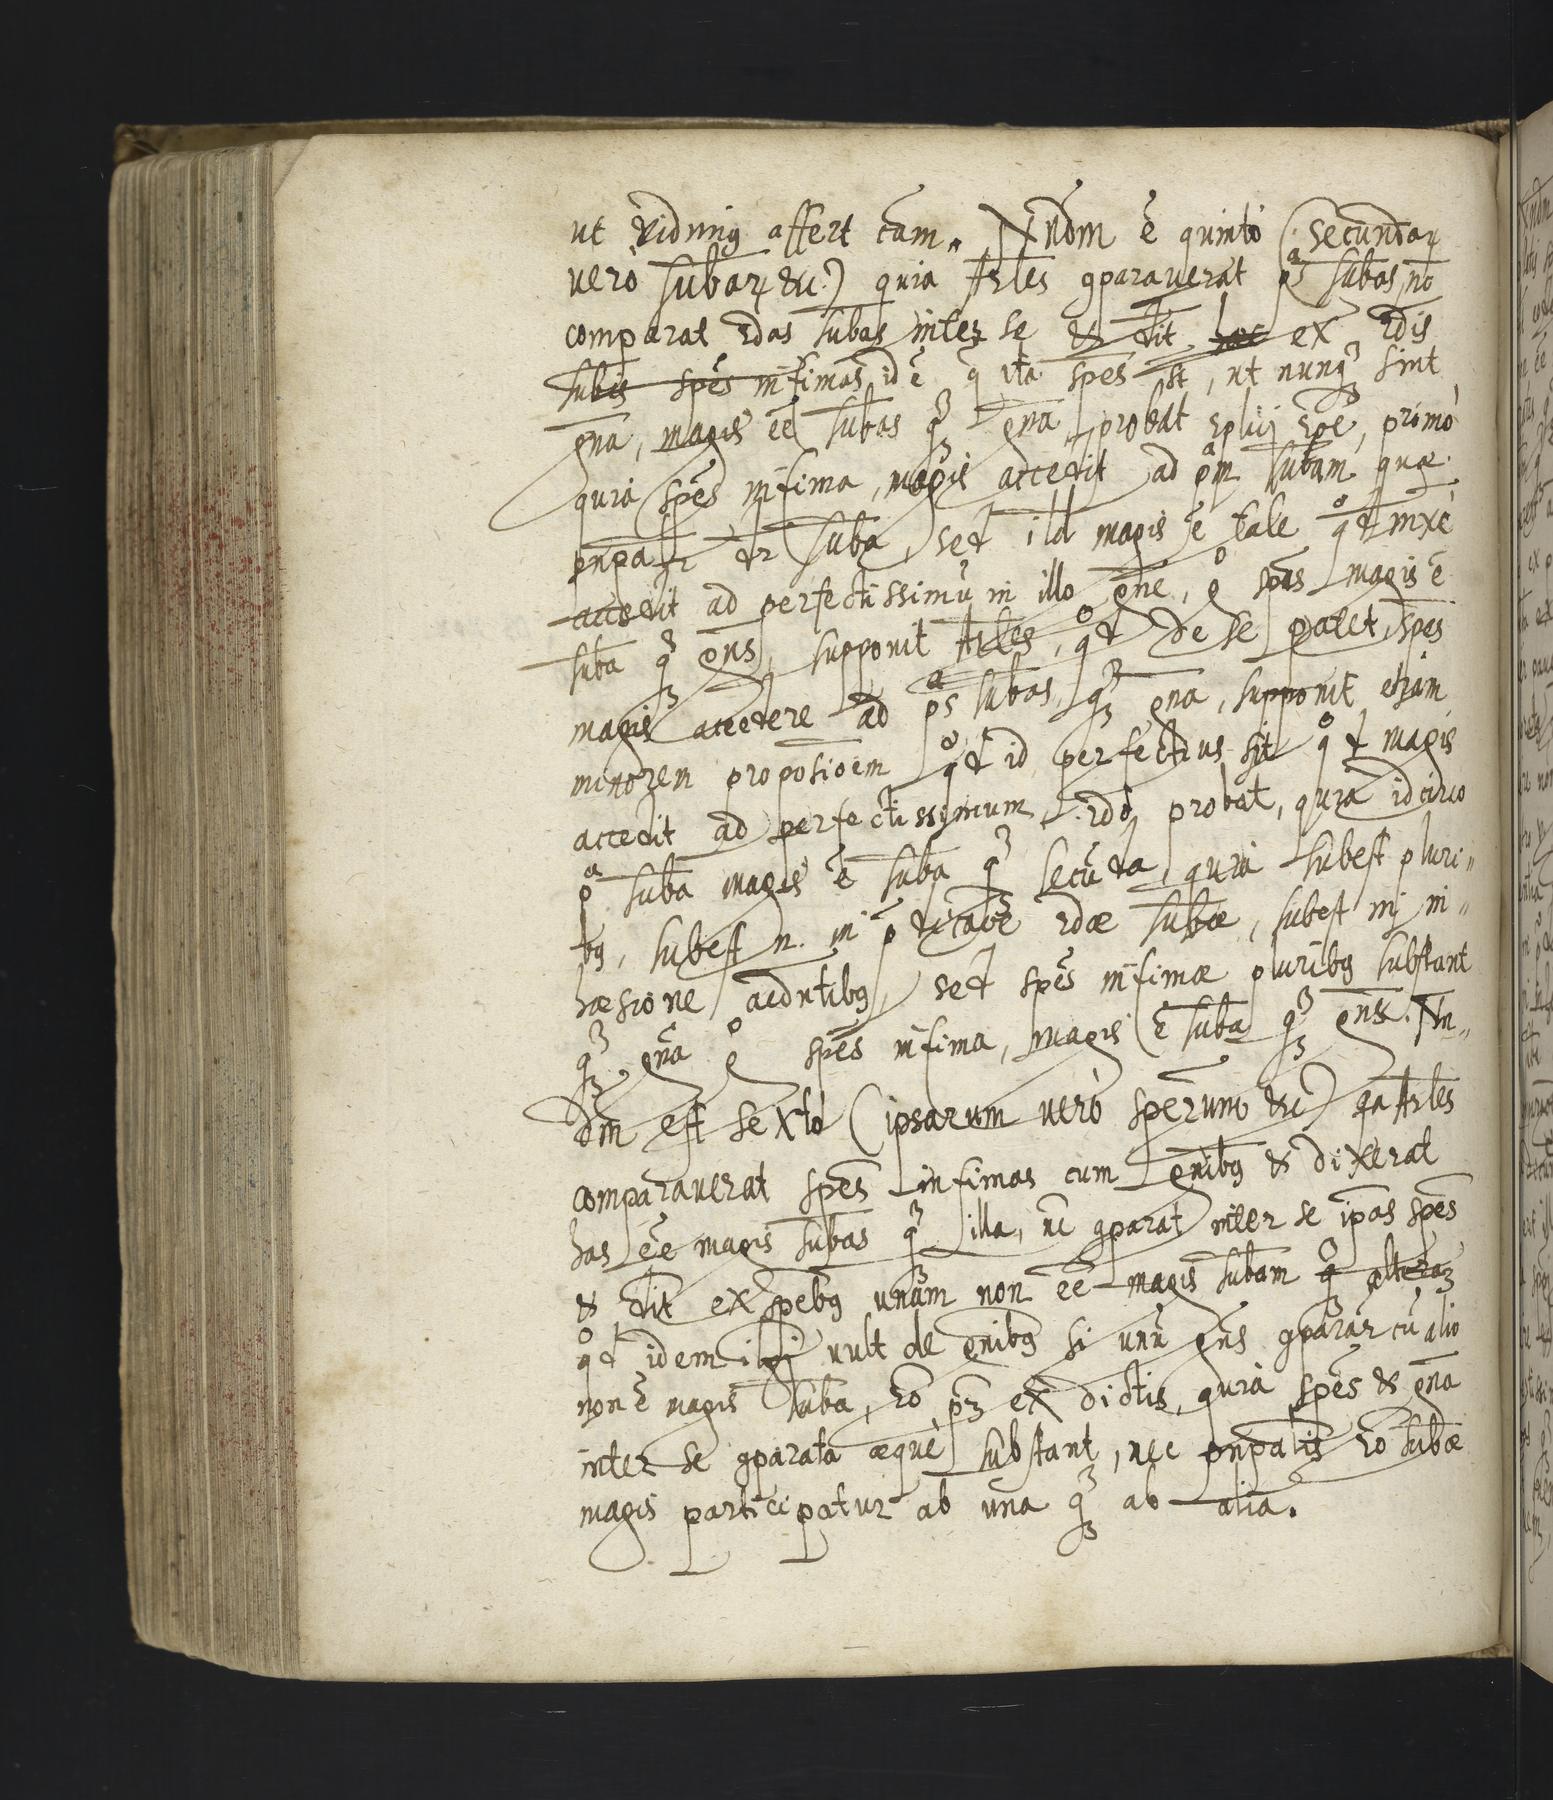 ut vidimꝰ affert cam„ Nndm ē quintò (secundaꝝ
verò subaꝝ &c) quia Arles ꝯparauerat pᵃˢ subas, nc̄
comparat 2das subas inter se & dit ex 2dis
subis spēs infimas, id ē q̄ ita spēs st, ut nunqᷓ sint
gn̄a, magis ēē subas qᷓ gn̄a, probat 2plici rōe, primò
quia spēs infima, magis accedit ad pᵃᵐ subam quæ
pn̄palr dr suba, sed ild magis ē tale qᵒd mxè
accedit ad perfectissimū in illo gn̄e, gᵒ spēs magis ē
suba qᷓ gn̄s, supponit Arles, qᵒd de se patet, spēs
magis accedere ad pᵃˢ subas, qᷓ gn̄a, supponit etiam
minorem propositiōem qᵒd id perfectius sit qᵒd magis
accedit ad perfectissimum. 2dò probat, quia idcirco
pᵃ suba magis ē suba qᷓ secūda, quia subest pluri„
bꝰ, subest n. in p̄dicaōe 2dæ subæ, subest in in„
hæsione accidn̄tibꝰ, sed spēs infimæ pluribꝰ substant
qᷓ gn̄a gᵒ spēs infima, magis ē suba qᷓ gn̄s. Nn„
dm est sextò (ipsarum verò speerum &c) qa Arles
comparauerat spēs infimas cum gn̄ibꝰ & dixerat
has ēē magis subas qᷓ illa, nc̄ ꝯparat inter se ipas spēs
& dit ex spebꝰ unam non ēē magis subam qᷓ alteraꝫ
qᵒd idem vult de gn̄ibꝰ si unū gn̄s ꝯparar cū alio
non ē magis suba, rō pꝫ ex dictis, quia spēs & gn̄a
inter se ꝯparata æquè substant, nec pn̄palis rō subæ
magis participatur ab una qᷓ ab alia.